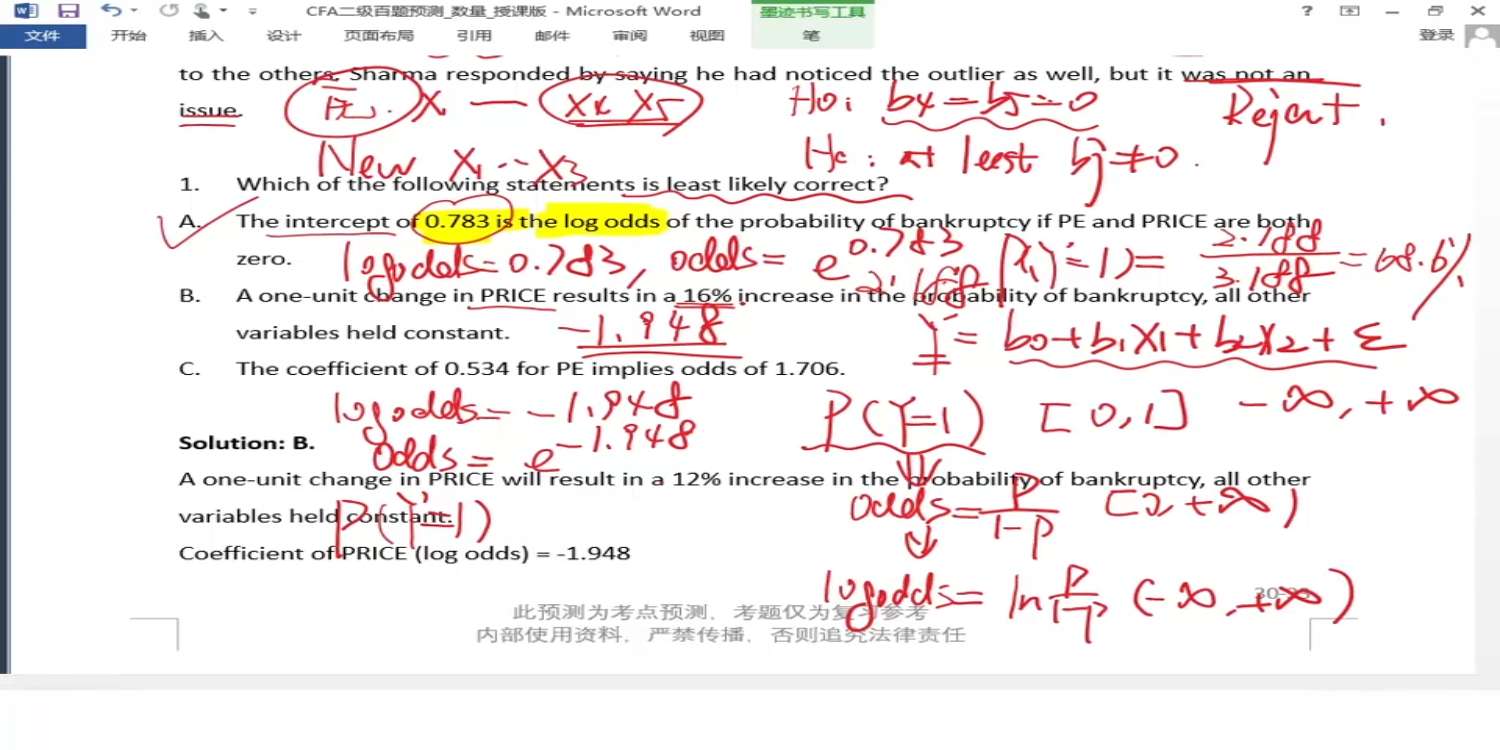 CFA二级百题预测_数量_授课版 - Microsoft Word
墨迹书写工具
文件 开始 插入 设计 页面布局 引用 邮件 审阅 视图 笔 登录
to the others. Sharma responded by saying he had noticed the outlier as well, but it was not an
issue.
无. X — X4 X5
H0: b4 = b5 = 0
Reject.
New X1 -- X3
at least bj ≠ 0.
1. Which of the following statements is least likely correct?
A. The intercept of 0.783 is the log odds of the probability of bankruptcy if PE and PRICE are both
zero.
log odds = 0.783, odds = e^0.783
2.188
P(Y=1) = 2.188/3.188 = 68.6%
B. A one-unit change in PRICE results in a 16% increase in the probability of bankruptcy, all other
variables held constant.
-1.948
Y = b0 + b1X1 + b2X2 + ε
C. The coefficient of 0.534 for PE implies odds of 1.706.
log odds = -1.948
P(Y=1) [0,1] -∞, +∞
Solution: B.
odds = e^-1.948
A one-unit change in PRICE will result in a 12% increase in the probability of bankruptcy, all other
variables held constant.
P(Y=1)
odds = P/1-P
+∞)
Coefficient of PRICE (log odds) = -1.948
log odds = ln P/1-P (-∞, +∞)
此预测为考点预测，考题仅为复习参考
内部使用资料，严禁传播，否则追究法律责任